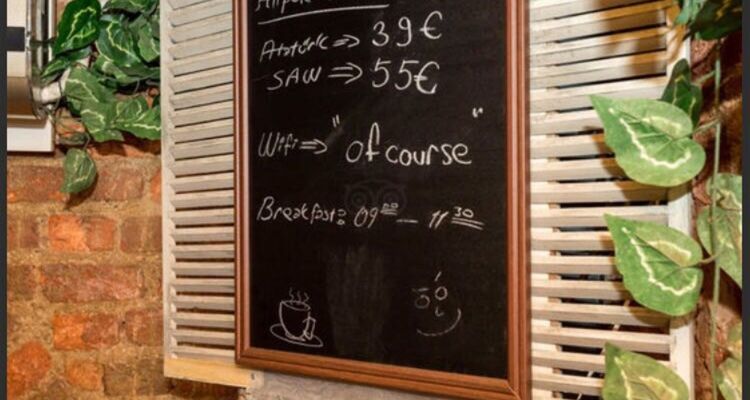 Atatürk => 39€
SAW => 55€
Wifi => "of course"
Breakfast: 09⁰⁰ - 11³⁰